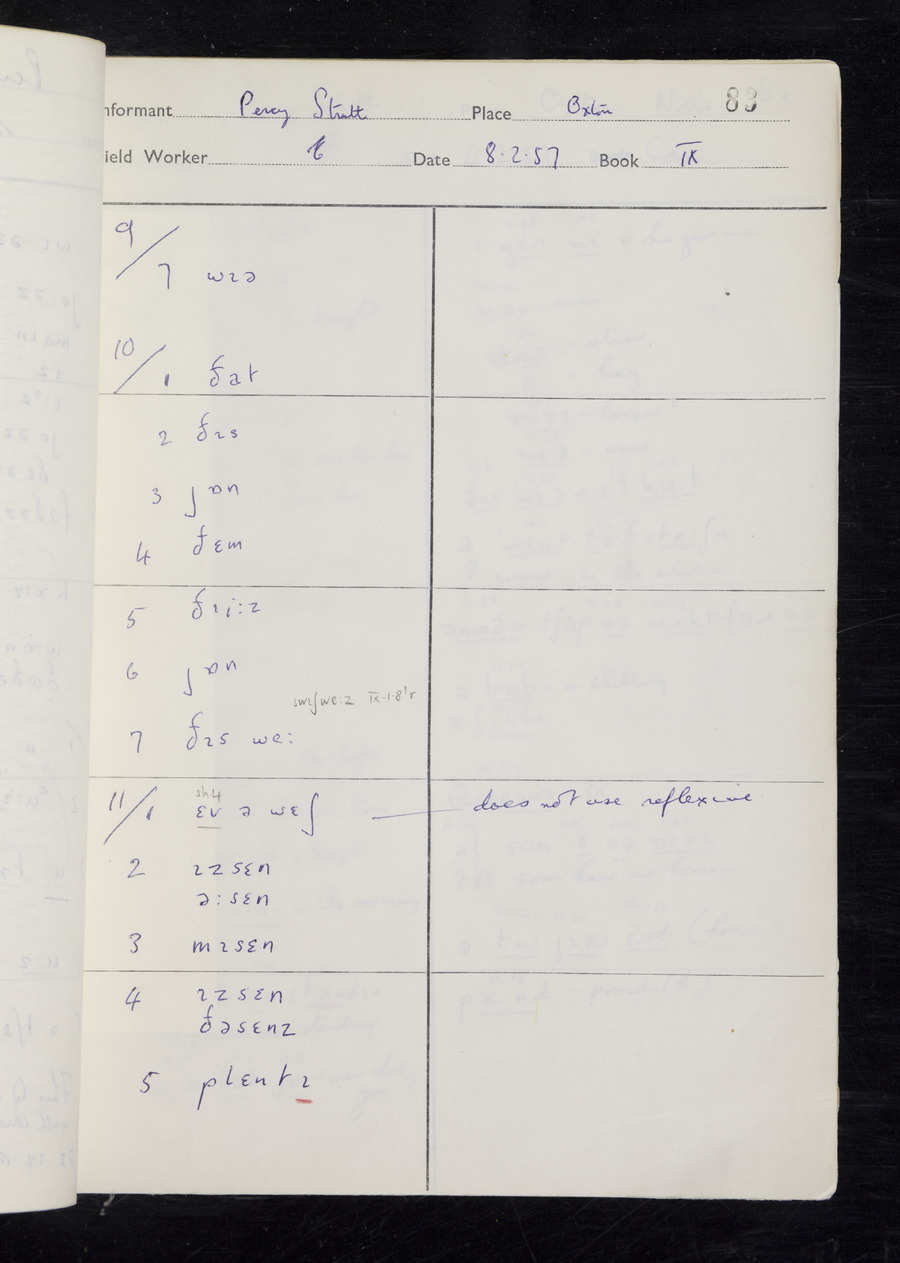 Informant Percy Strutt Place Oxton 83
Field Worker Date 8.2.57 Book IX
9/7 wɪə
10/1 ðat
2 ðɪs
3 jɒn
4 ðɛm
5 ðɪi:z
6 jɒn
swɪʃweːz IX.1.8¹r
7 ðɪs weː
sh.4
11/1 ɛv ə wɛʃ does not use reflexive
2 ɪzsɛn
ə:sɛn
3 mɪsɛn
4 ɪzsɛn
ðəsɛnz
5 plɛntɪ